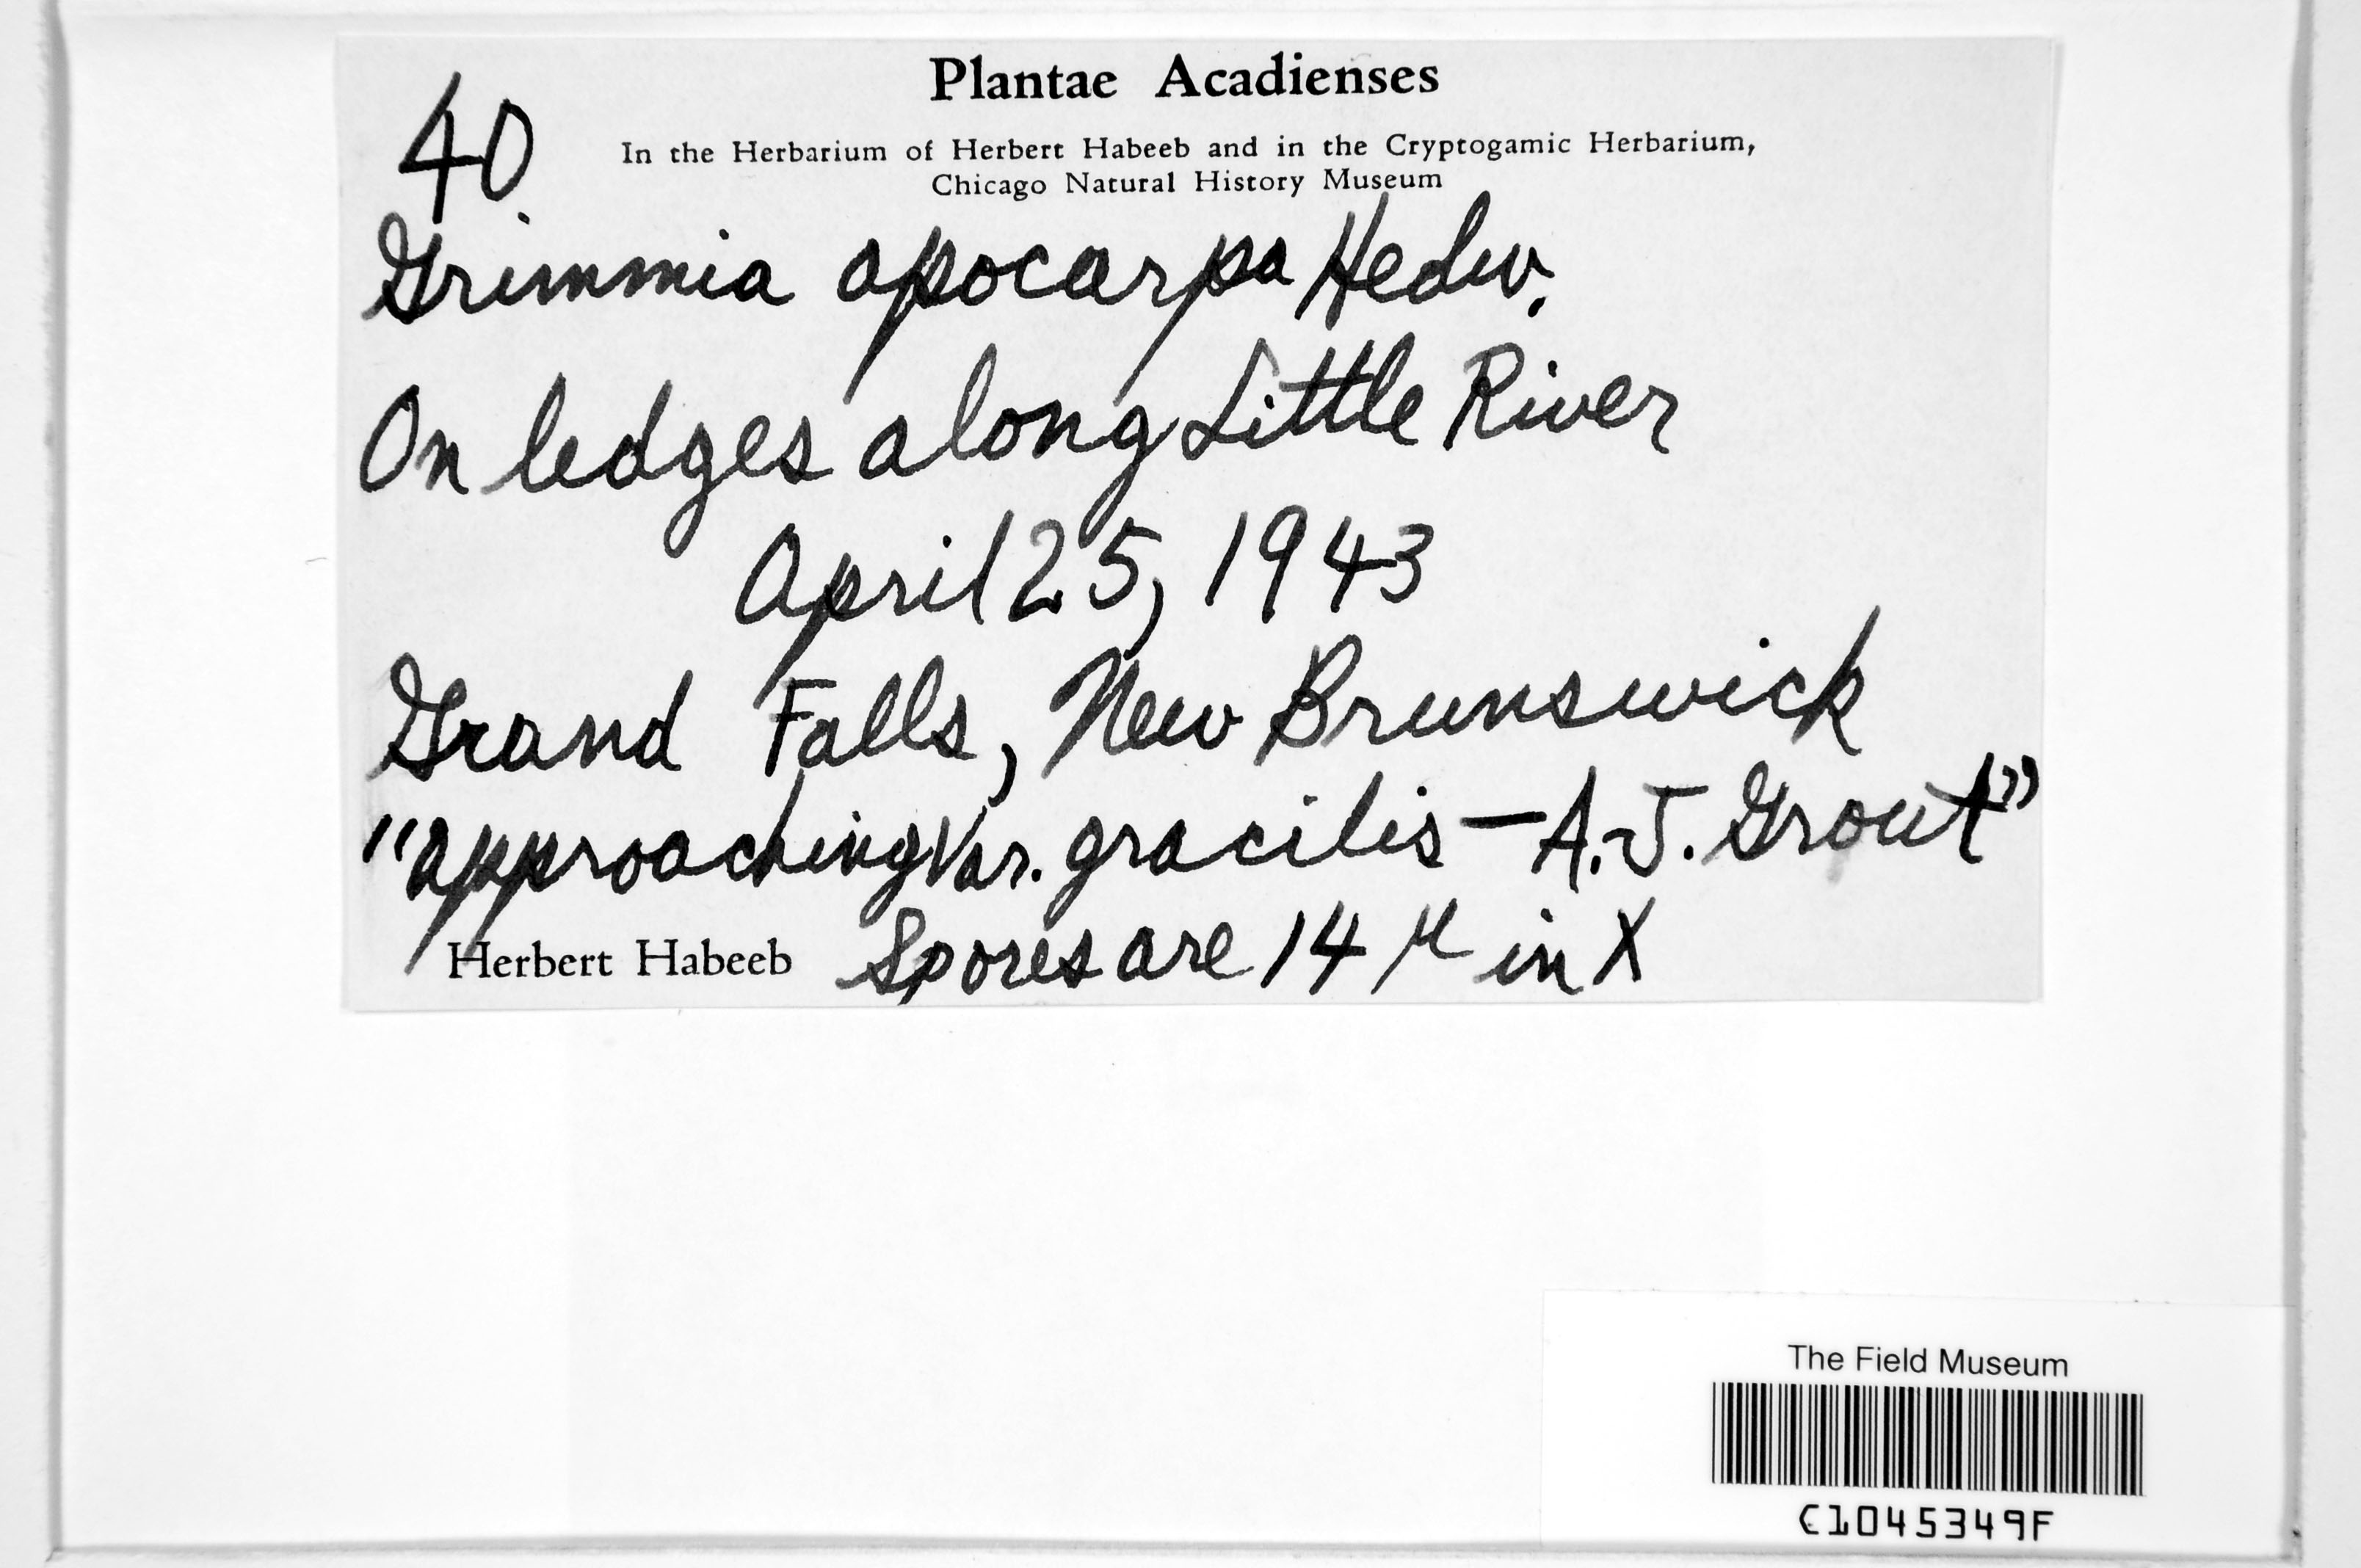 Plantae Acadienses
40
In the Herbarium of Herbert Habeeb and in the Cryptogamic Herbarium,
Chicago Natural History Museum
Grimmia apocarpa Hedw.
On ledges along Little River
April 25, 1943
Grand Falls, New Brunswick
"approaching Var. gracilis — A. J. Grout"
Herbert Habeeb Spores are 14 µ in X
The Field Museum
C1045349F